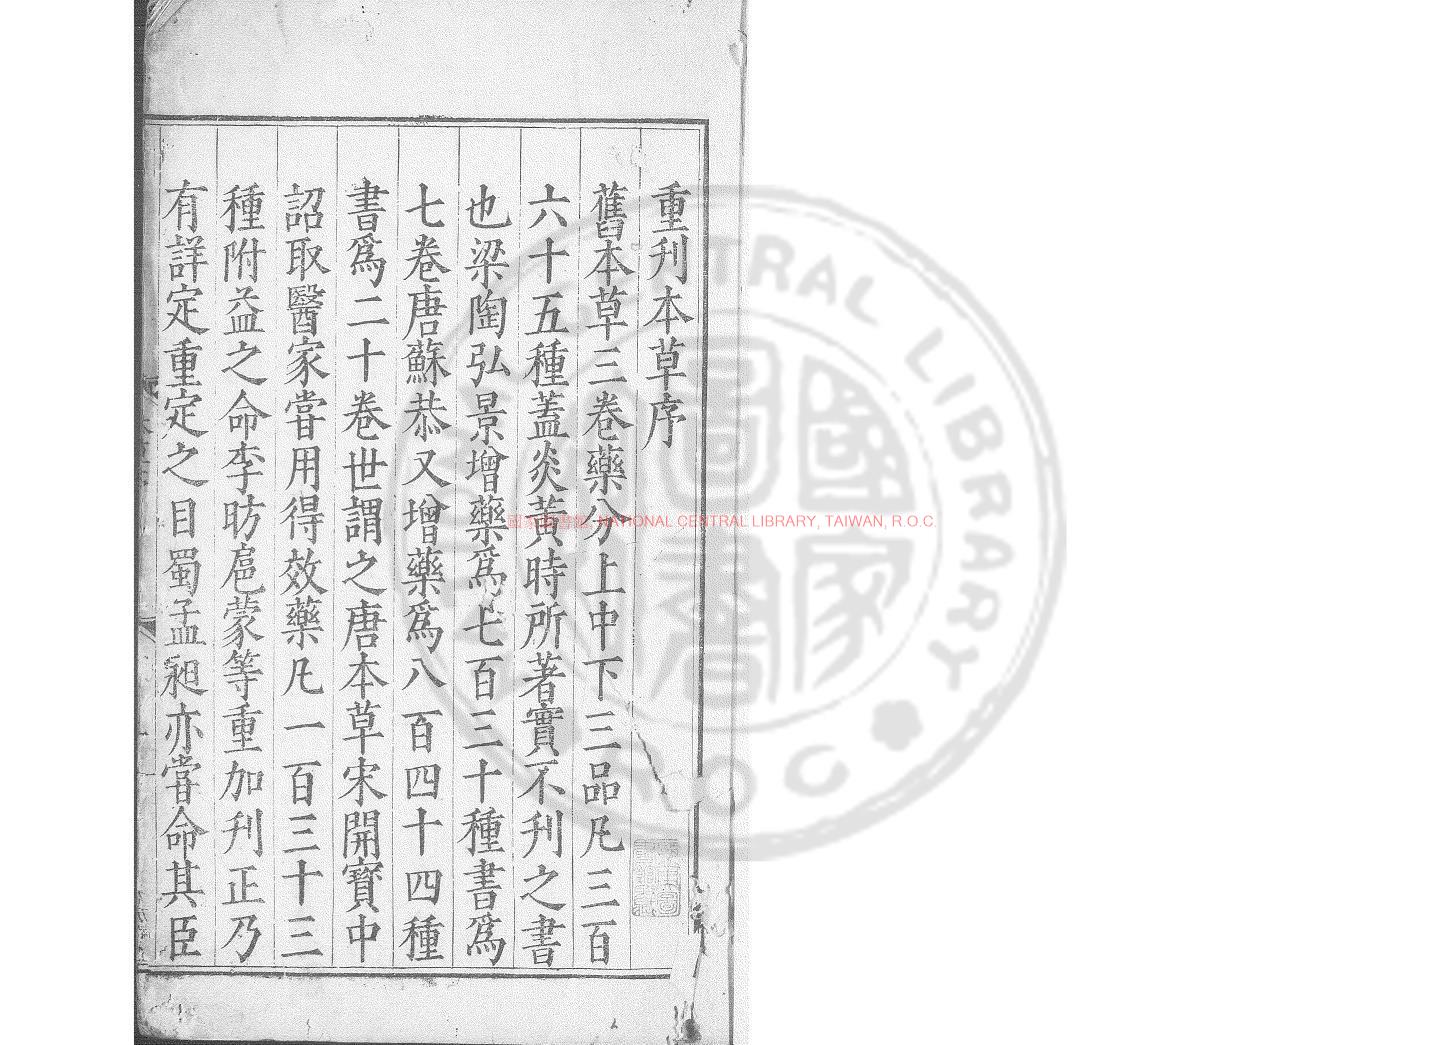 重刋本草序
舊本草三卷藥分上中下三品凡三百
六十五種蓋炎黃時所著實不刋之書
也梁陶弘景增藥爲七百三十種書爲
七卷唐蘇恭又增藥爲八百四十四種
書爲二十卷世謂之唐本草宋開寳中
詔取醫家甞用得效藥凡一百三十三
種附益之命李昉扈蒙等重加刋正乃
有詳定重定之目蜀孟昶亦甞命其臣
國家圖書館, NATIONAL CENTRAL LIBRARY, TAIWAN, R.O.C.